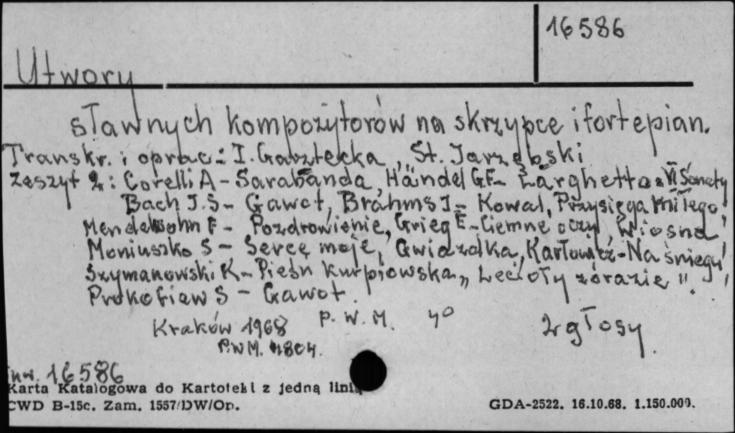 16586
Utwory
sławnych kompozytorów na skrzypce i fortepian.
Transkr. i oprac: I. Garztecka, St. Jarzębski
Zeszyt 2: Corelli A - Sarabanda, Händel G.F - Larghetto z VI Sonaty
Bach J.S - Gawot, Brahms J - Kowal, Przysięga miłego,
Mendelsohn F - Pozdrowienie, Grieg E - Ciemne oczy, Wiosna
Moniuszko S - Serce moje, Gwiazdka, Karłowicz - Na śniegu,
Szymanowski K - Pieśń kurpiowska "Lecioły zórazie",
Prokofiew S - Gawot.
Kraków 1968 P.W.M. 4°
2 głosy
P.W.M. 4804.
inw. 16586
Karta Katalogowa do Kartoteki z jedną linią
CWD B-15c. Zam. 1557/DW/Op.
GDA-2522. 16.10.68. 1.150.000.